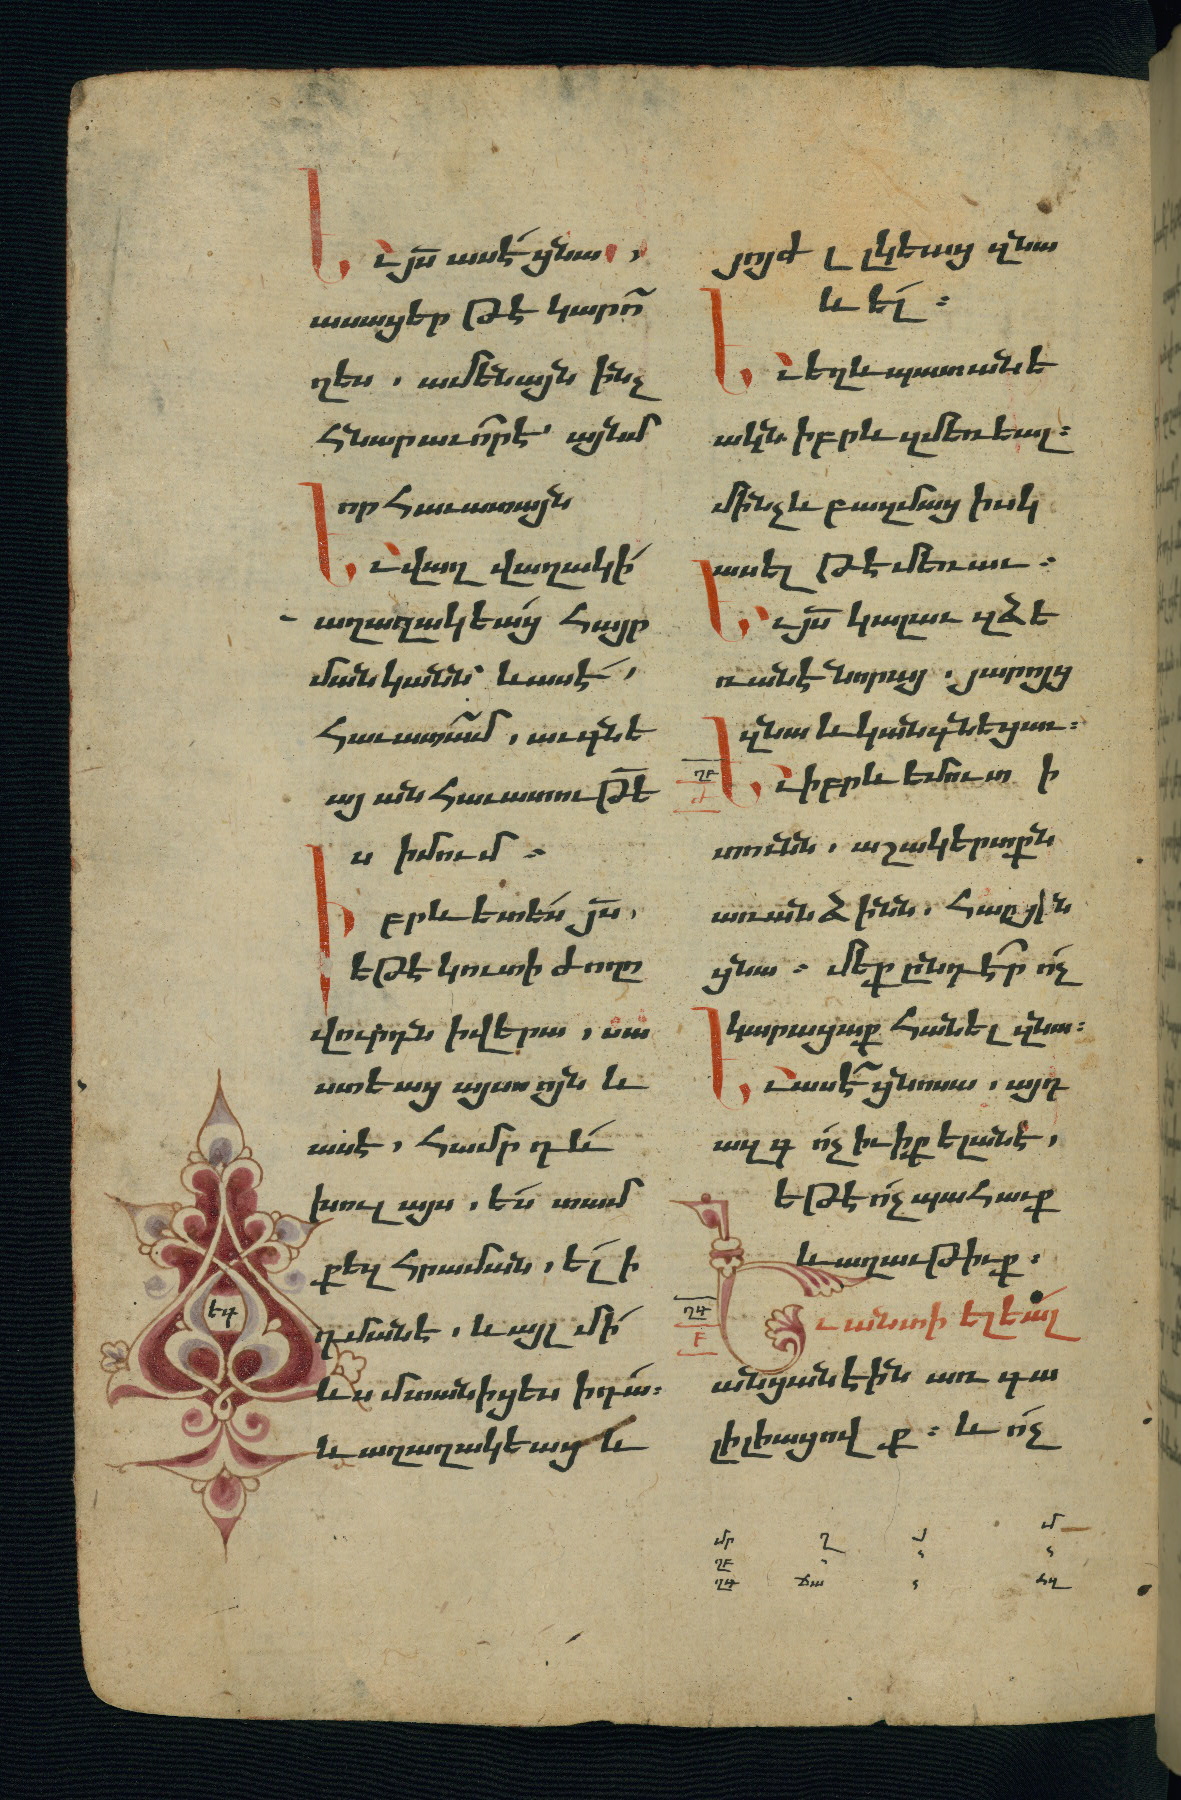 Եւ յս ասէ ցնա,
ասացեր թէ կարո
ղես. ամենայն ինչ
հնարաւոր է՝ այնմ
որ հաւատայն
Եւ վաղ վաղակի
աղաղակեաց հայր
մանկանն՝ և ասէ,
հաւատամ, աւգնե
այ ան հաւատութե
ս իմում։
Իբրև ետես յս,
եթէ կուտի ժողո
վուրդն ի վերա, սա
ստեաց այսոոյն և
ասէ, համր դև
խուլ այս, ես տամ
քեզ հրաման, ել ի
դմանէ, և այլ մի
ևս մտանիցես ի դա։
և աղաղակեաց և
եգ
յոյժ լլկեաց զնա
և ել։
Եւ եղև պատանե
ակն իբրև զմեռեալ։
մինչև բազմաց իսկ
ասել թէ մեռաւ։
Եւ յս կալաւ զձե
ռանէ նորայ. յարոյց
զնա և կանգնեցաւ։
ղբ
ժ
Եւ իբրև եմուտ ի
տունն, աշակերտքն
առանձինն. հարցին
ցնա։ մեք ընդէր ոչ
կարացաք հանել զնա։
Եւ ասէ ցնոսա, այդ
ազգ ոչ իւիք ելանէ,
եթէ ոչ պահաւք
և աղաւթիւք։
ղգ
բ
Եւ անտի ելեալ
անցանէին առ գա
լիլիացովք։ և ոչ
ղբ
ղգ ճա